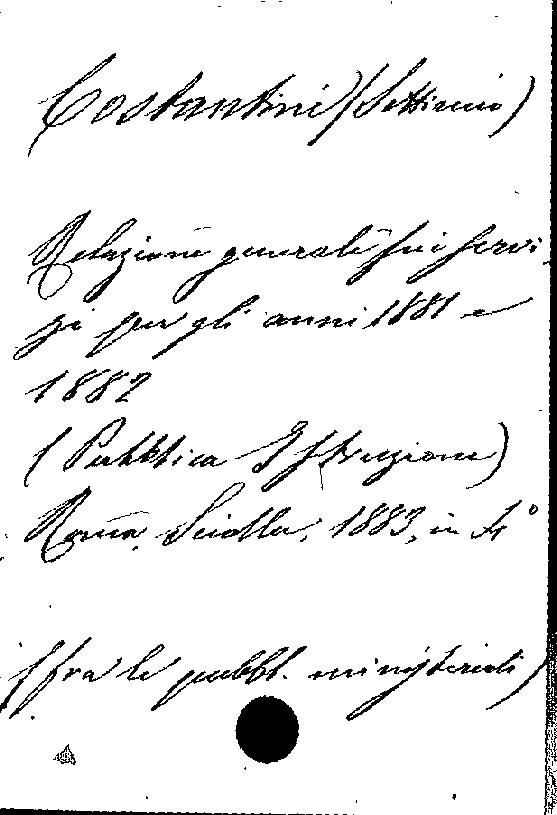 Costantini (Settimio)
Relazione generale sui servi-
zi per gli anni 1881 e
1882
(Pubblica Istruzione)
Roma, Sciolla, 1883, in 4°
(fra le pubbl. ministeriali)